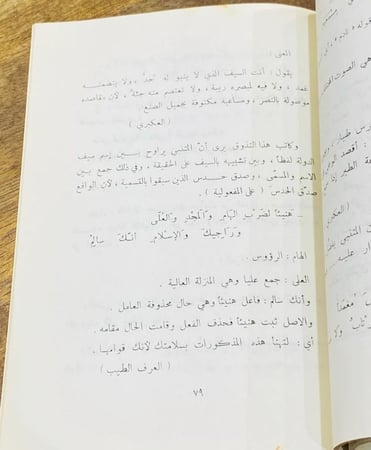 المعنى :
يقول : أنت السيف الذي لا ينبو له حدّ ، ولا يتضمنه
غمد ، ولا فيه لمبصره ريبة ، ولا تعتصم منه جنّة ، لأن مقاصده
موصولة بالنصر ، ومساعيه مكنوفة بجميل الصنع
( العكبري )
وكاتب هذا التذوق يرى أنّ المتنبي يراوح بين إسم سيف
الدولة لفظاً ، وبين تشبيهه بالسيف على الحقيقة ، وفي ذلك جمع بين
الاسم والمسمّى ، وصدق حدس الذين سبقوا بالتسمية ، لأن الواقع
صدّق الحدس ( على المفعولية ) .
ـ هنيئاً لضرب الهام والمجد والعلى
وراجيك والإسلام أنّك سالم
الهام : الرؤوس .
العلى : جمع عليا وهي المنزلة العالية .
وأنك سالم : فاعل هنيئاً وهي حال محذوفة العامل .
والاصل ثبت هنيئاً فحذف الفعل وقامت الحال مقامه .
أي : لتهنأ هذه المذكورات بسلامتك لأنك قوامها .
( العرف الطيب )
٧٩